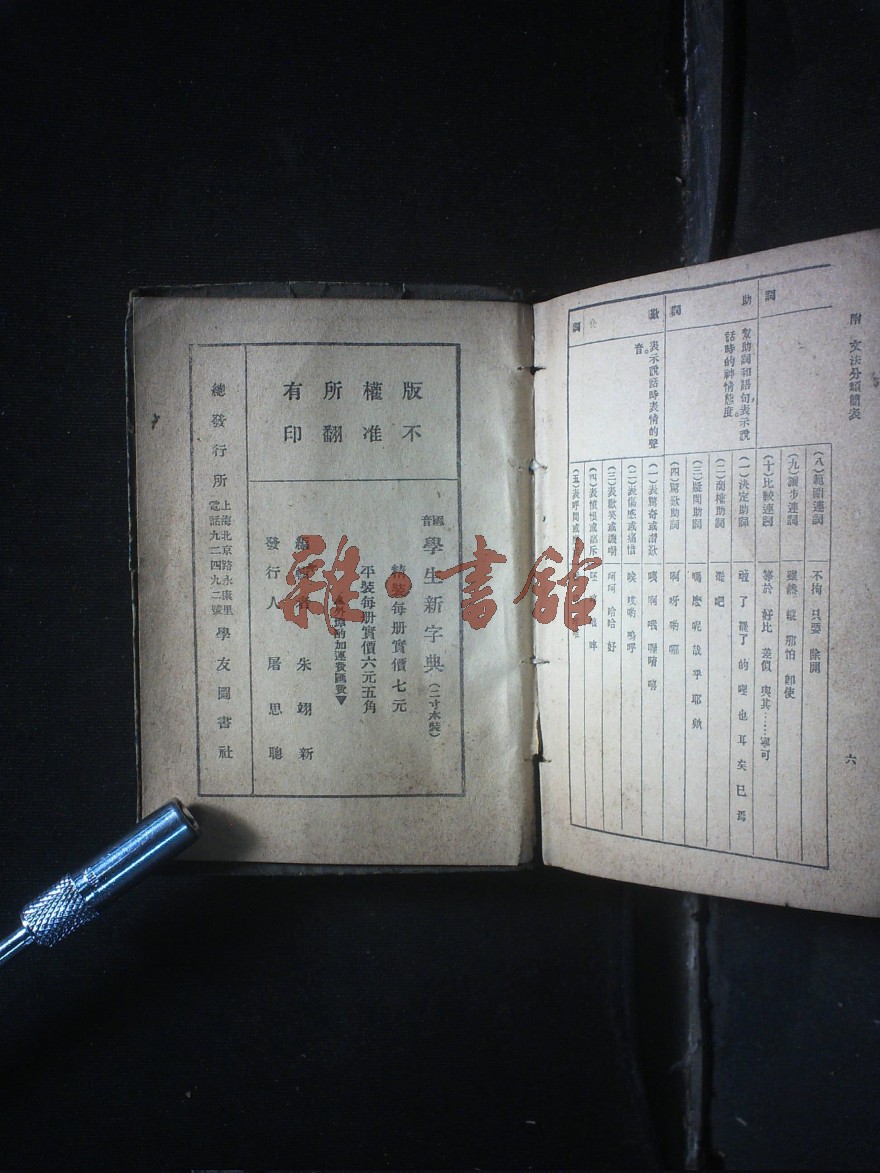 附 文法分類簡表
六
詞
(八)範圍連詞 不拘 只要 除開
(九)讓步連詞 雖然 縱 那怕 卽使
(十)比較連詞 等於 好比 差似 與其……寧可
助詞
幫助詞和語句,表示說話時的神情態度。
(一)決定助詞 啦 了 罷了 的 哩 也 耳 矣 已 焉
(二)商榷助詞 罷 吧
(三)疑問助詞 嗎 麽 呢 哉 乎 耶 歟
(四)驚歎助詞 啊 呀 喲
歎
表示說話時表情的聲音。
(一)表驚奇或讚歎 咦 啊 哦 唷 嘻
(二)表傷感或痛惜 唉 哎喲 嗚呼
(三)表歡笑或譏嘲 呵呵 哈哈 好
(四)表憤恨或
(五)表呼問或
詞
版權所有
不准翻印
國音學生新字典(二寸本裝)
精裝每册實價七元
平裝每册實價六元五角
外埠酌加運費匯費▼
編輯者 朱翊新
發行人 屠思聰
總發行所 上海北京路永康里 電話九二四九二號 學友圖書社
雜·書館